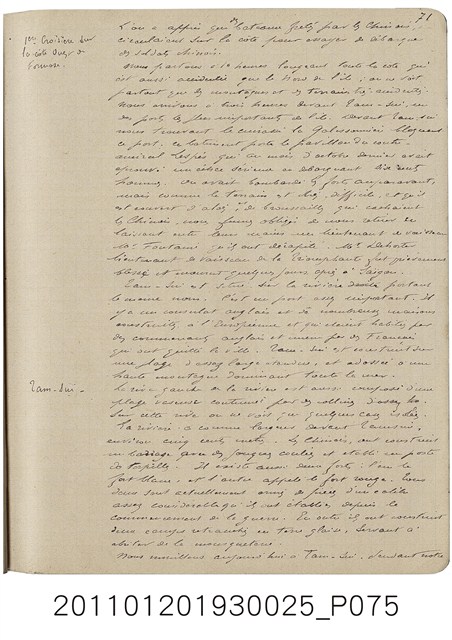 71
1ère Croisière sur
la côte Ouest de
Formose.
L'on a appris que des bateaux frétés par les Chinois,
circulaient sur la côte pour essayer de débarquer
des soldats chinois.
Nous partons à 10 heures longeant toute la côte qui
est aussi accidentée que le Nord de l'île; on ne voit
partout que des montagnes et des terrains très accidentés.
Nous arrivons à trois heures devant Tam-Sui, un
des ports les plus importants de l'île. Devant Tam-Sui
nous trouvons le cuirassé la Galissonnière bloquant
ce port, ce bâtiment porte le pavillon du contre-
amiral Lespès qui au mois d'octobre dernier avait
éprouvé un échec sérieux en débarquant
hommes. On avait bombardé les forts auparavant,
mais comme le terrain est très difficile, et qu'il
est couvert de broussailles qui cachaient
les Chinois, nous fûmes obligés de nous retirer en
laissant entre leurs mains un lieutenant de vaisseau
Mr. Fontaine qu'ils ont décapité. Mr. Dehorter
lieutenant de vaisseau de la Triomphante fut grièvement
blessé et mourut quelques jours après à Saïgon.
Tam-Sui est situé sur la rivière portant
le même nom. C'est un port assez important. Il
y a un consulat anglais et de nombreuses maisons
construites à l'Européenne et qui étaient habitées par
des commerçants anglais et même par des Français
qui ont quitté la ville. Tam-Sui est construit sur
une plage d'assez large étendue, et adossée à une
haute montagne dominant toute la mer.
Tam-Sui.
La rive gauche de la rivière est aussi composée d'une
plage continuée par des collines d'assez
Sur cette rive on ne voit que quelques cases isolées.
La rivière a comme largeur devant Tamsui,
environ cinq cents mètres. Les Chinois, ont construit
un barrage avec des jonques coulées et établi un poste
de torpilles. Il existe aussi deux forts: l'un le
fort blanc, et l'autre appelé le fort rouge. Tous
deux sont actuellement armés de pièces d'un calibre
assez considérable qu'ils ont établies depuis le
commencement de la guerre. En outre ils ont construit
deux camps retranchés en terre glaise, servant à
abriter de la mousqueterie.
Nous mouillons aujourd'hui à Tam-Sui, pendant notre
201101201930025_P075